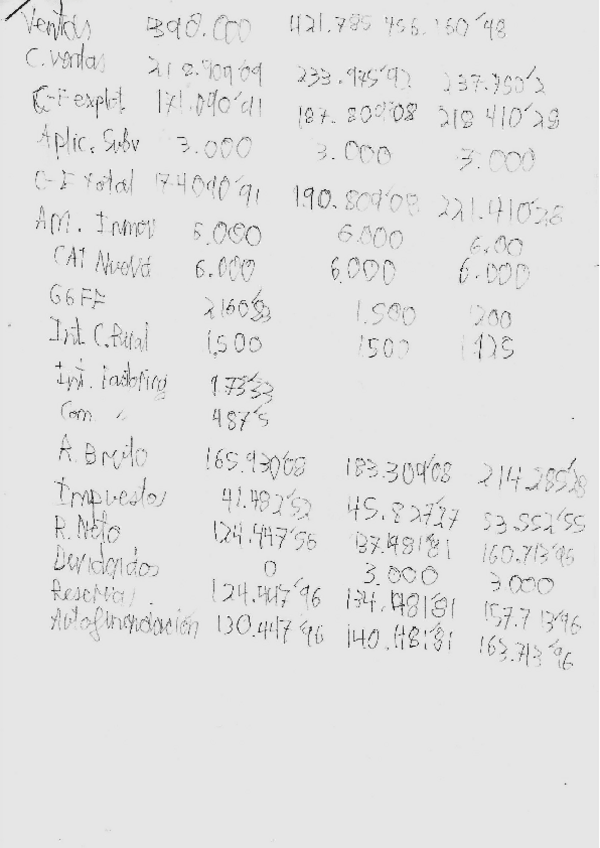 Ventas 390.000 421.785 456.160'48
C. ventas 218.909'09 233.975'92 237.750'2
C-F explot 171.090'91 187.809'08 218.410'28
Aplic. Subv 3.000 3.000 3.000
C-F total 174.090'91 190.809'08 221.410'28
AM. Inmov 6.000 6.000 6.00
CAT Nuova 6.000 6.000 6.000
GGFF 2160'83 1.500 1200
Int C. Rural 1,500 1500 1125
Int. 173'33
Com " 487'5
R. Bruto 165.930'08 183.309'08 214.285'28
Impuestos 41.482'52 45.827'27 53.552'55
R. Neto 124.447'56 137.481'81 160.713'96
Dividendos 0 3.000 3000
Reservas 124.447'96 134.481'81 157.713'96
Autofinanciación 130.447'96 140.481'81 163.713'96